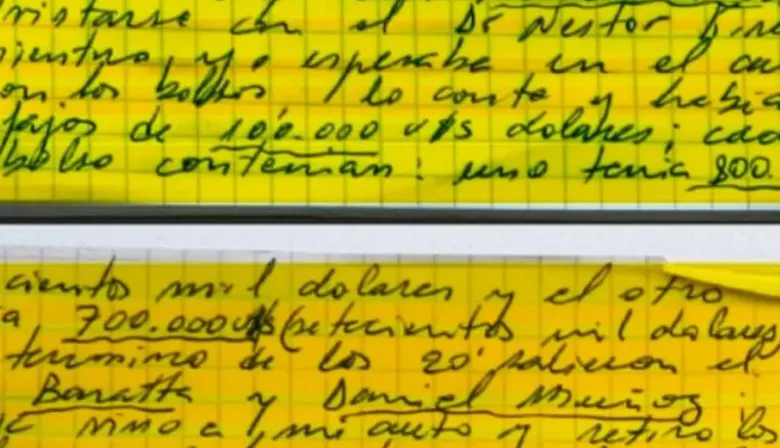 vistarse con el Dr Nestor
mientras, yo esperaba en el
on los bolsos, lo conte y habia
fajos de 100.000 u$s dolares; cad
bolso contenian: uno tenia 800.
cientos mil dolares y el otro
a 700.000 u$s (setecientos mil dolares
termino de los 20' salieron el
Baratta y Daniel Muñoz
vino a mi auto y retiro los